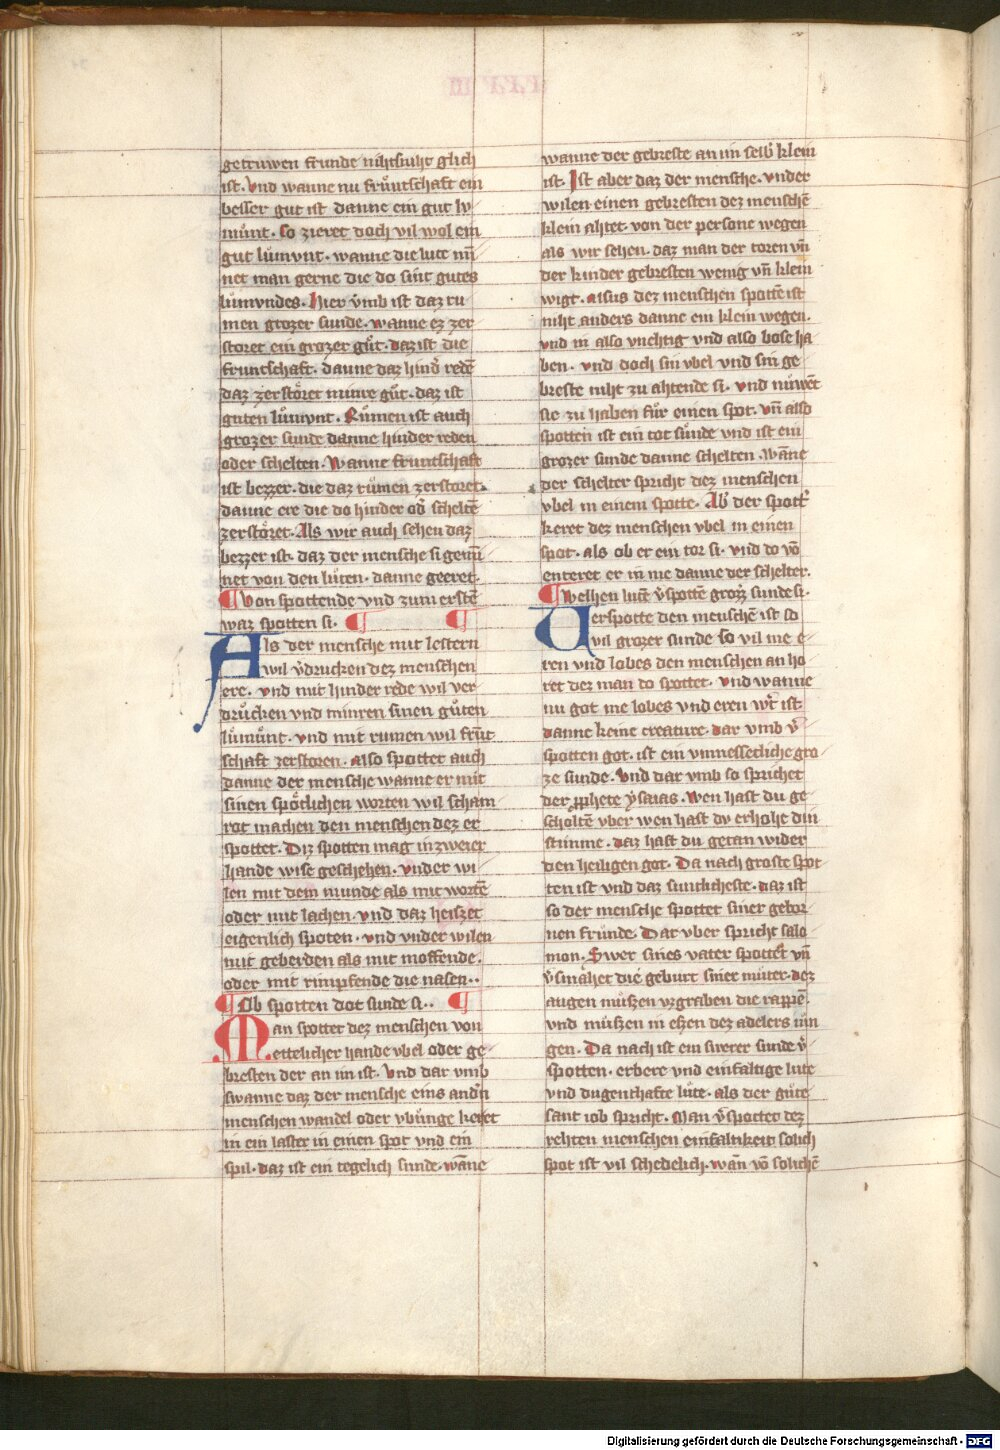 getruwen frunde nihtsniht glich
ist. Vnd wanne nu fruͤntschaft ein
besser gut ist danne ein gut lv
muͤnt. so zieret doch vil wol ein
gut luͤmvnt. wanne die lute nin̄
net man gerne die do sint gutes
luͤmvndes. Hier vmb ist daz ru
men grozer sunde. wanne ez zer
storet ein grozer guͤt. daz ist die
fruntschaft. danne daz hindʾ redē
daz zerstoͤret minre guͤt. daz ist
guten luͤmvnt. Ruͤmen ist auch
grozer sunde danne hinder reden
oder schelten. Wanne fruntschaft
ist bezzer. die daz ruͤmen zerstoret.
danne ere die do hinder odʾ scheltē
zerstoͤret. Als wir auch sehen daz
bezzer ist. daz der mensche si gemī
net von den luͤten. danne geeret.
¶ Von spottende vnd zum erstē
waz spotten si. ¶ ¶
Als der mensche mit lestern
wil vʾdrucken dez menschen
ere. vnd mit hinder rede wil ver
druͤcken vnd minren sinen guͤten
luͤmuͤnt. vnd mit rumen wil fruͤt
schaft zerstoren. also spottet auch
danne der mensche wanne er mit
sinen spoͤtlichen worten wil scham
rot machen den menschen dez er
spottet. Diz spotten mag in zweier
hande wise geschehen. vnder wi
len mit dem munde als mit wortē
oder mit lachen. vnd daz heiszet
eigenlich spoten. vnd vnder wilen
mit geberden als mit moffende.
oder mit rimpfende die nasen..
¶ Ob spotten dot sunde si.. ¶
Man spottet dez menschen von
ettelicher hande vbel oder ge
bresten der an im ist. Vnd dar vmb
swanne daz der mensche eins andʾn
menschen wandel oder vbuͤnge keret
in ein laster in einen spot vnd ein
spil. daz ist ein tegelich sunde. wāne
wanne der gebreste an im selbʾ klein
ist. Ist aber daz der mensche. vnder
wilen einen gebresten dez menschē
klein ahtet. von der persone wegen
als wir sehen. daz man der toren vn̄
der kinder gebresten wenig vn̄ klein
wigt. alsus dez menschen spottē ist
niht anders danne ein klein wegen.
vnd in also vnchtig vnd also bose ha
ben. vnd doch sin vbel vnd sin ge
breste niht zu ahtende si. vnd nuͤwet
sie zu haben fuͤr einen spot. vn̄ also
spotten ist ein tot suͤnde vnd ist ein
grozer sunde danne schelten. Wāne
der schelter spricht dez menschen
vbel in einem spotte. Abʾ der spottʾ
keret dez menschen vbel in einen
spot. als ob er ein tor si. vnd do vō
enteret er in me danne der schelter.
¶ Welhen lutē vʾspottē groz sunde si.
Verspotte den menschē ist so
vil grozer sunde so vil me e
ren vnd lobes den menschen an ho
ret dez man do spottet. vnd wanne
nu got me lobes vnd eren wʾt ist
danne keine creature. dar vmb vʾ
spotten got. ist ein vnmesseclichegro
ze sunde. Vnd dar vmb so sprichet
der ꝓphete ysaias. Wen hast du ge
scholtē vber wen hast dv erhohe din
stimme. daz hast du getan wider
den heiligen got. Da nach groste spot
ten ist vnd daz suntlicheste. daz ist
so der mensche spottet siner gebor
nen fruͤnde. Dar vber spricht salo
mon. Swer sines vater spottet vn̄
vʾsmahet die geburt siner muͤter. dez
augen muͤszen vzgraben die rappē.
vnd muͤszen in ezen dez adelers iuͤn
gen. Da nach ist ein swerer sunde vʾ
spotten. erbere vnd einfaltige lute
vnd dugenthafte luͤte. als der guͤte
sant iob spricht. Man vʾspottet dez
rehten menschen einfaltikeit solich
spot ist vil schedelich. wan̄ vō solichē
Digitalisierung gefördert durch die Deutsche Forschungsgemeinschaft - DFG